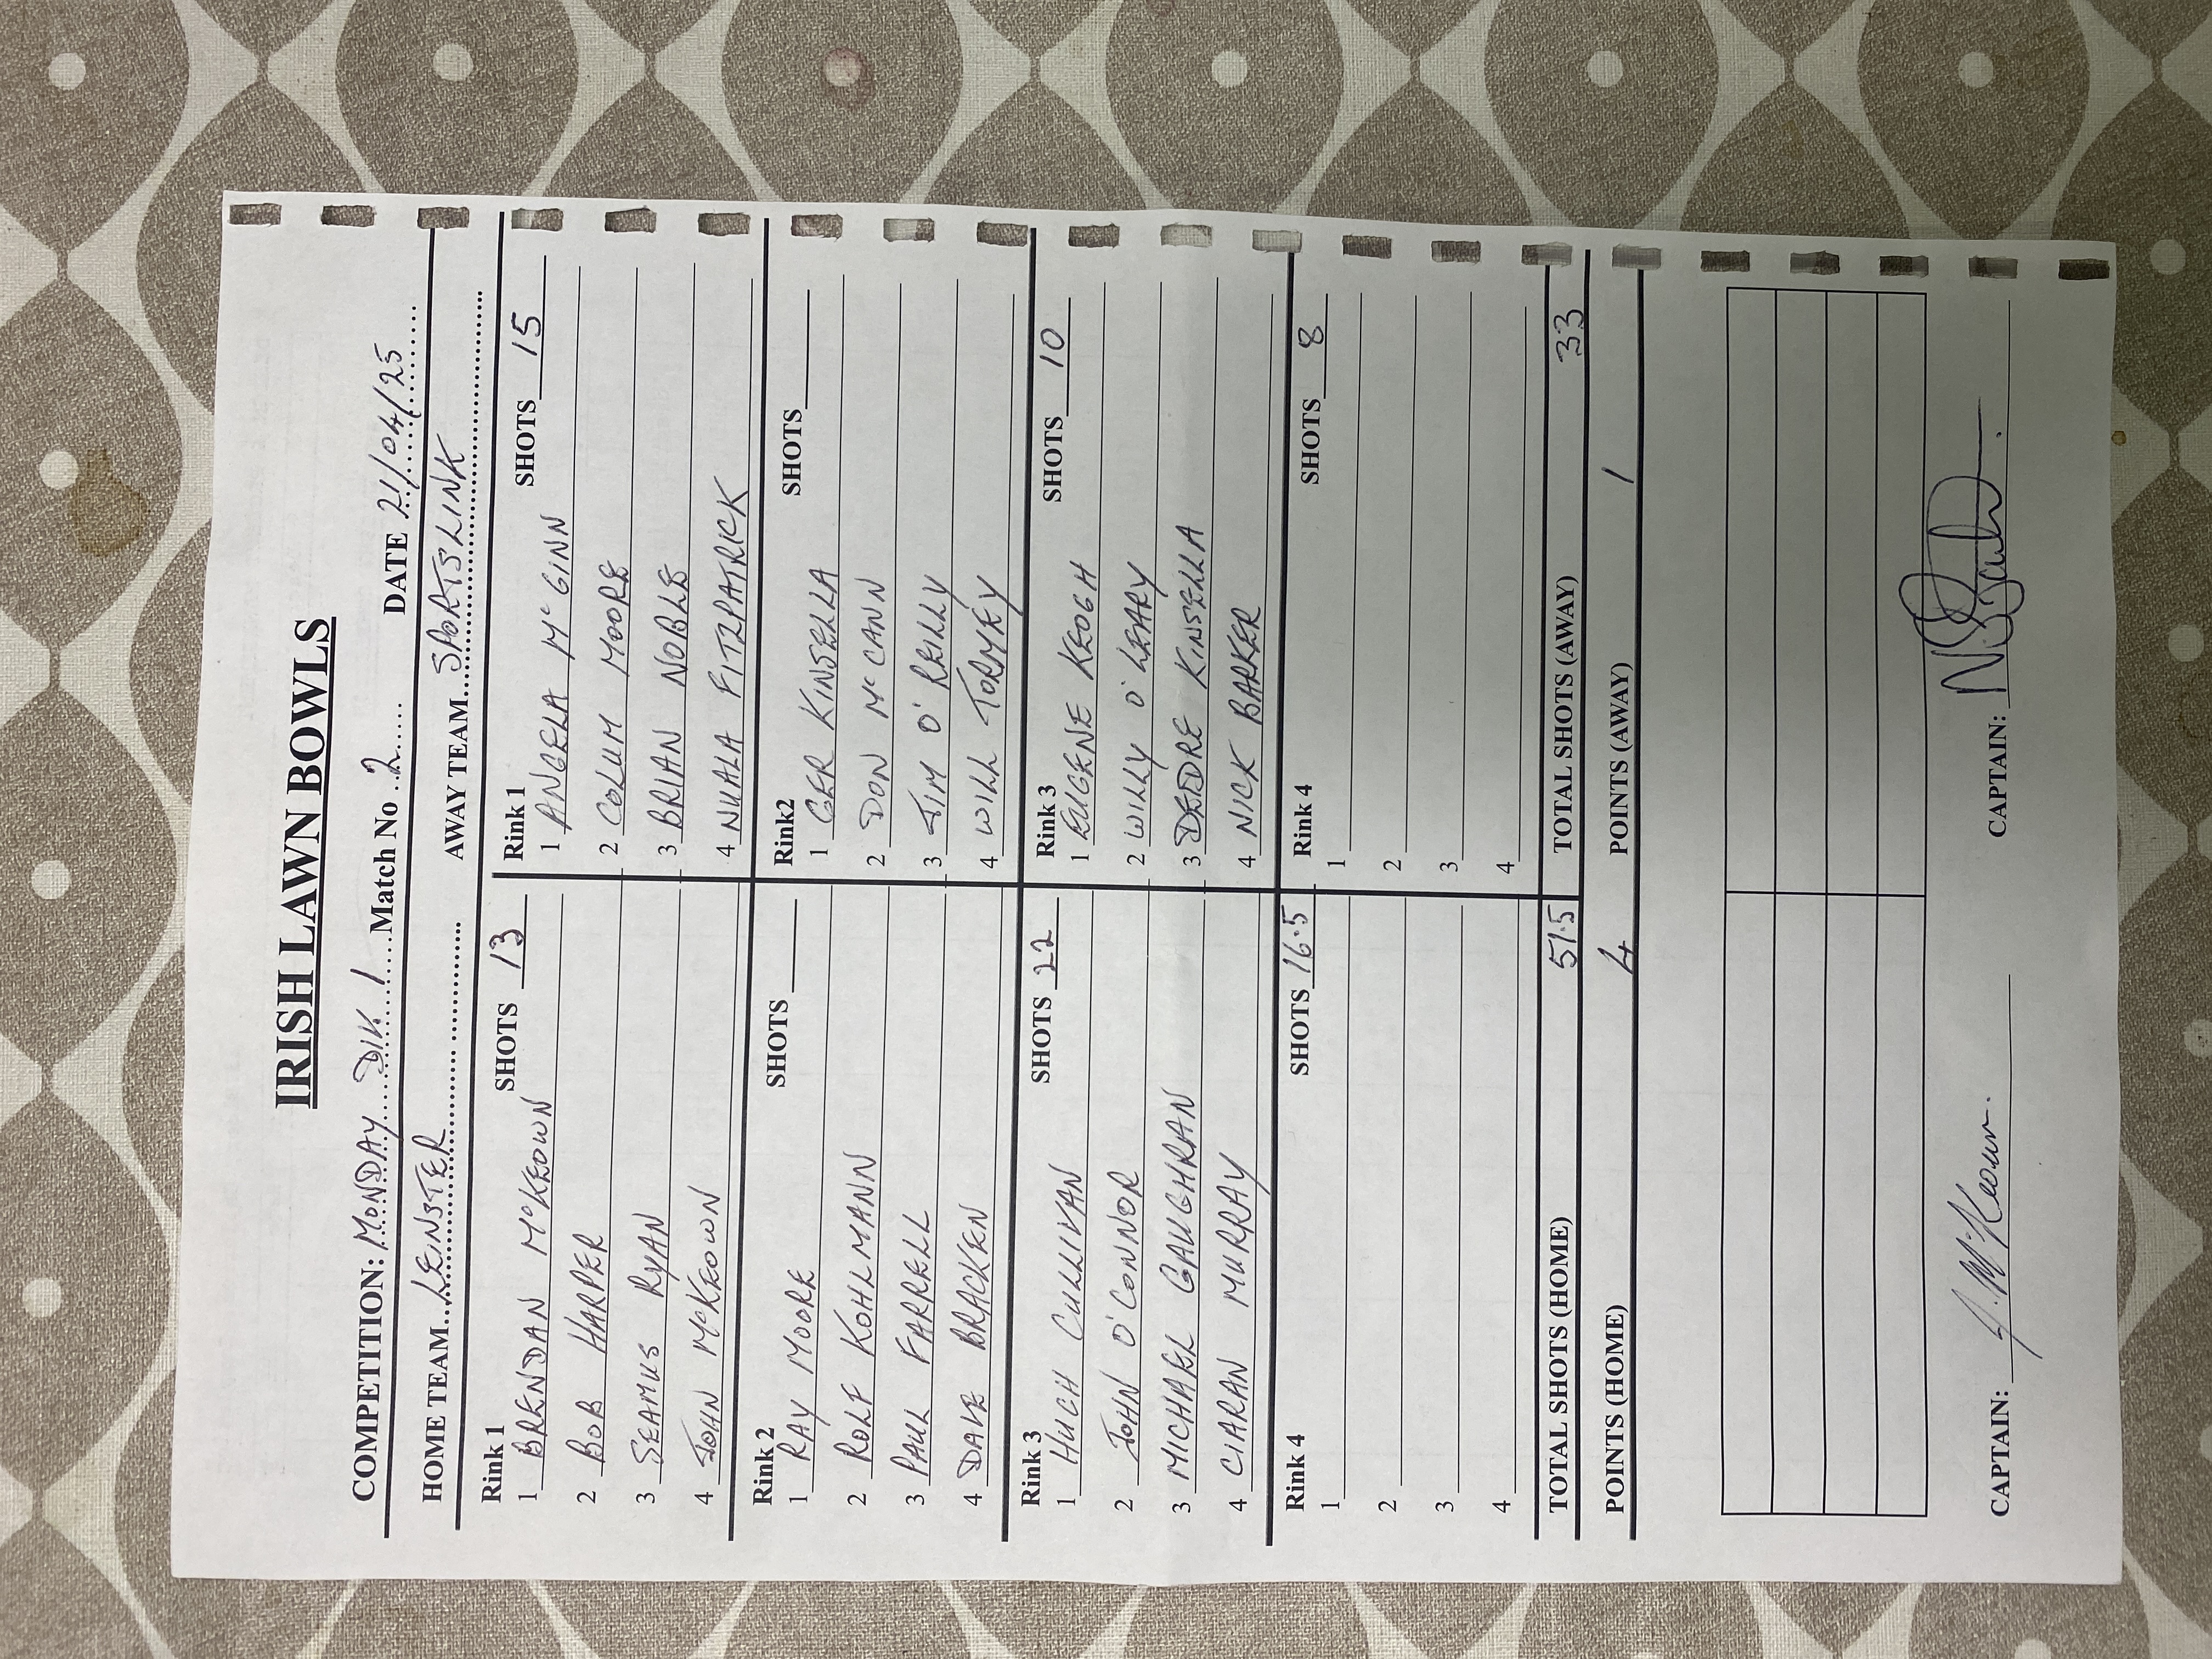 IRISH LAWN BOWLS
COMPETITION: MONDAY DIV 1 Match No 2 DATE 21/04/25
HOME TEAM LEINSTER AWAY TEAM SPORTSLINK
Rink 1 SHOTS 13 Rink 1 SHOTS 15
1 BRENDAN McKEOWN 1 ANGELA McGINN
2 BOB HARPER 2 COLUM MOORE
3 SEAMUS RYAN 3 BRIAN NOBLE
4 JOHN McKEOWN 4 NUALA FITZPATRICK
Rink 2 SHOTS Rink2 SHOTS
1 RAY MOORE 1 GER KINSELLA
2 ROLF KOHLMANN 2 DON McCANN
3 PAUL FARRELL 3 JIM O'REILLY
4 DAVE BRACKEN 4 WILL TORMEY
Rink 3 SHOTS 22 Rink 3 SHOTS 10
1 HUGH CULLIVAN 1 EUGENE KEOGH
2 JOHN O'CONNOR 2 WILLY O'LEARY
3 MICHAEL GAUGHRAN 3 DEDRE KINSELLA
4 CIARAN MURRAY 4 NICK BARKER
Rink 4 SHOTS 16.5 Rink 4 SHOTS 8
1 1
2 2
3 3
4 4
TOTAL SHOTS (HOME) 51.5 TOTAL SHOTS (AWAY) 33
POINTS (HOME) 4 POINTS (AWAY) 1
CAPTAIN: J. McKeown. CAPTAIN: